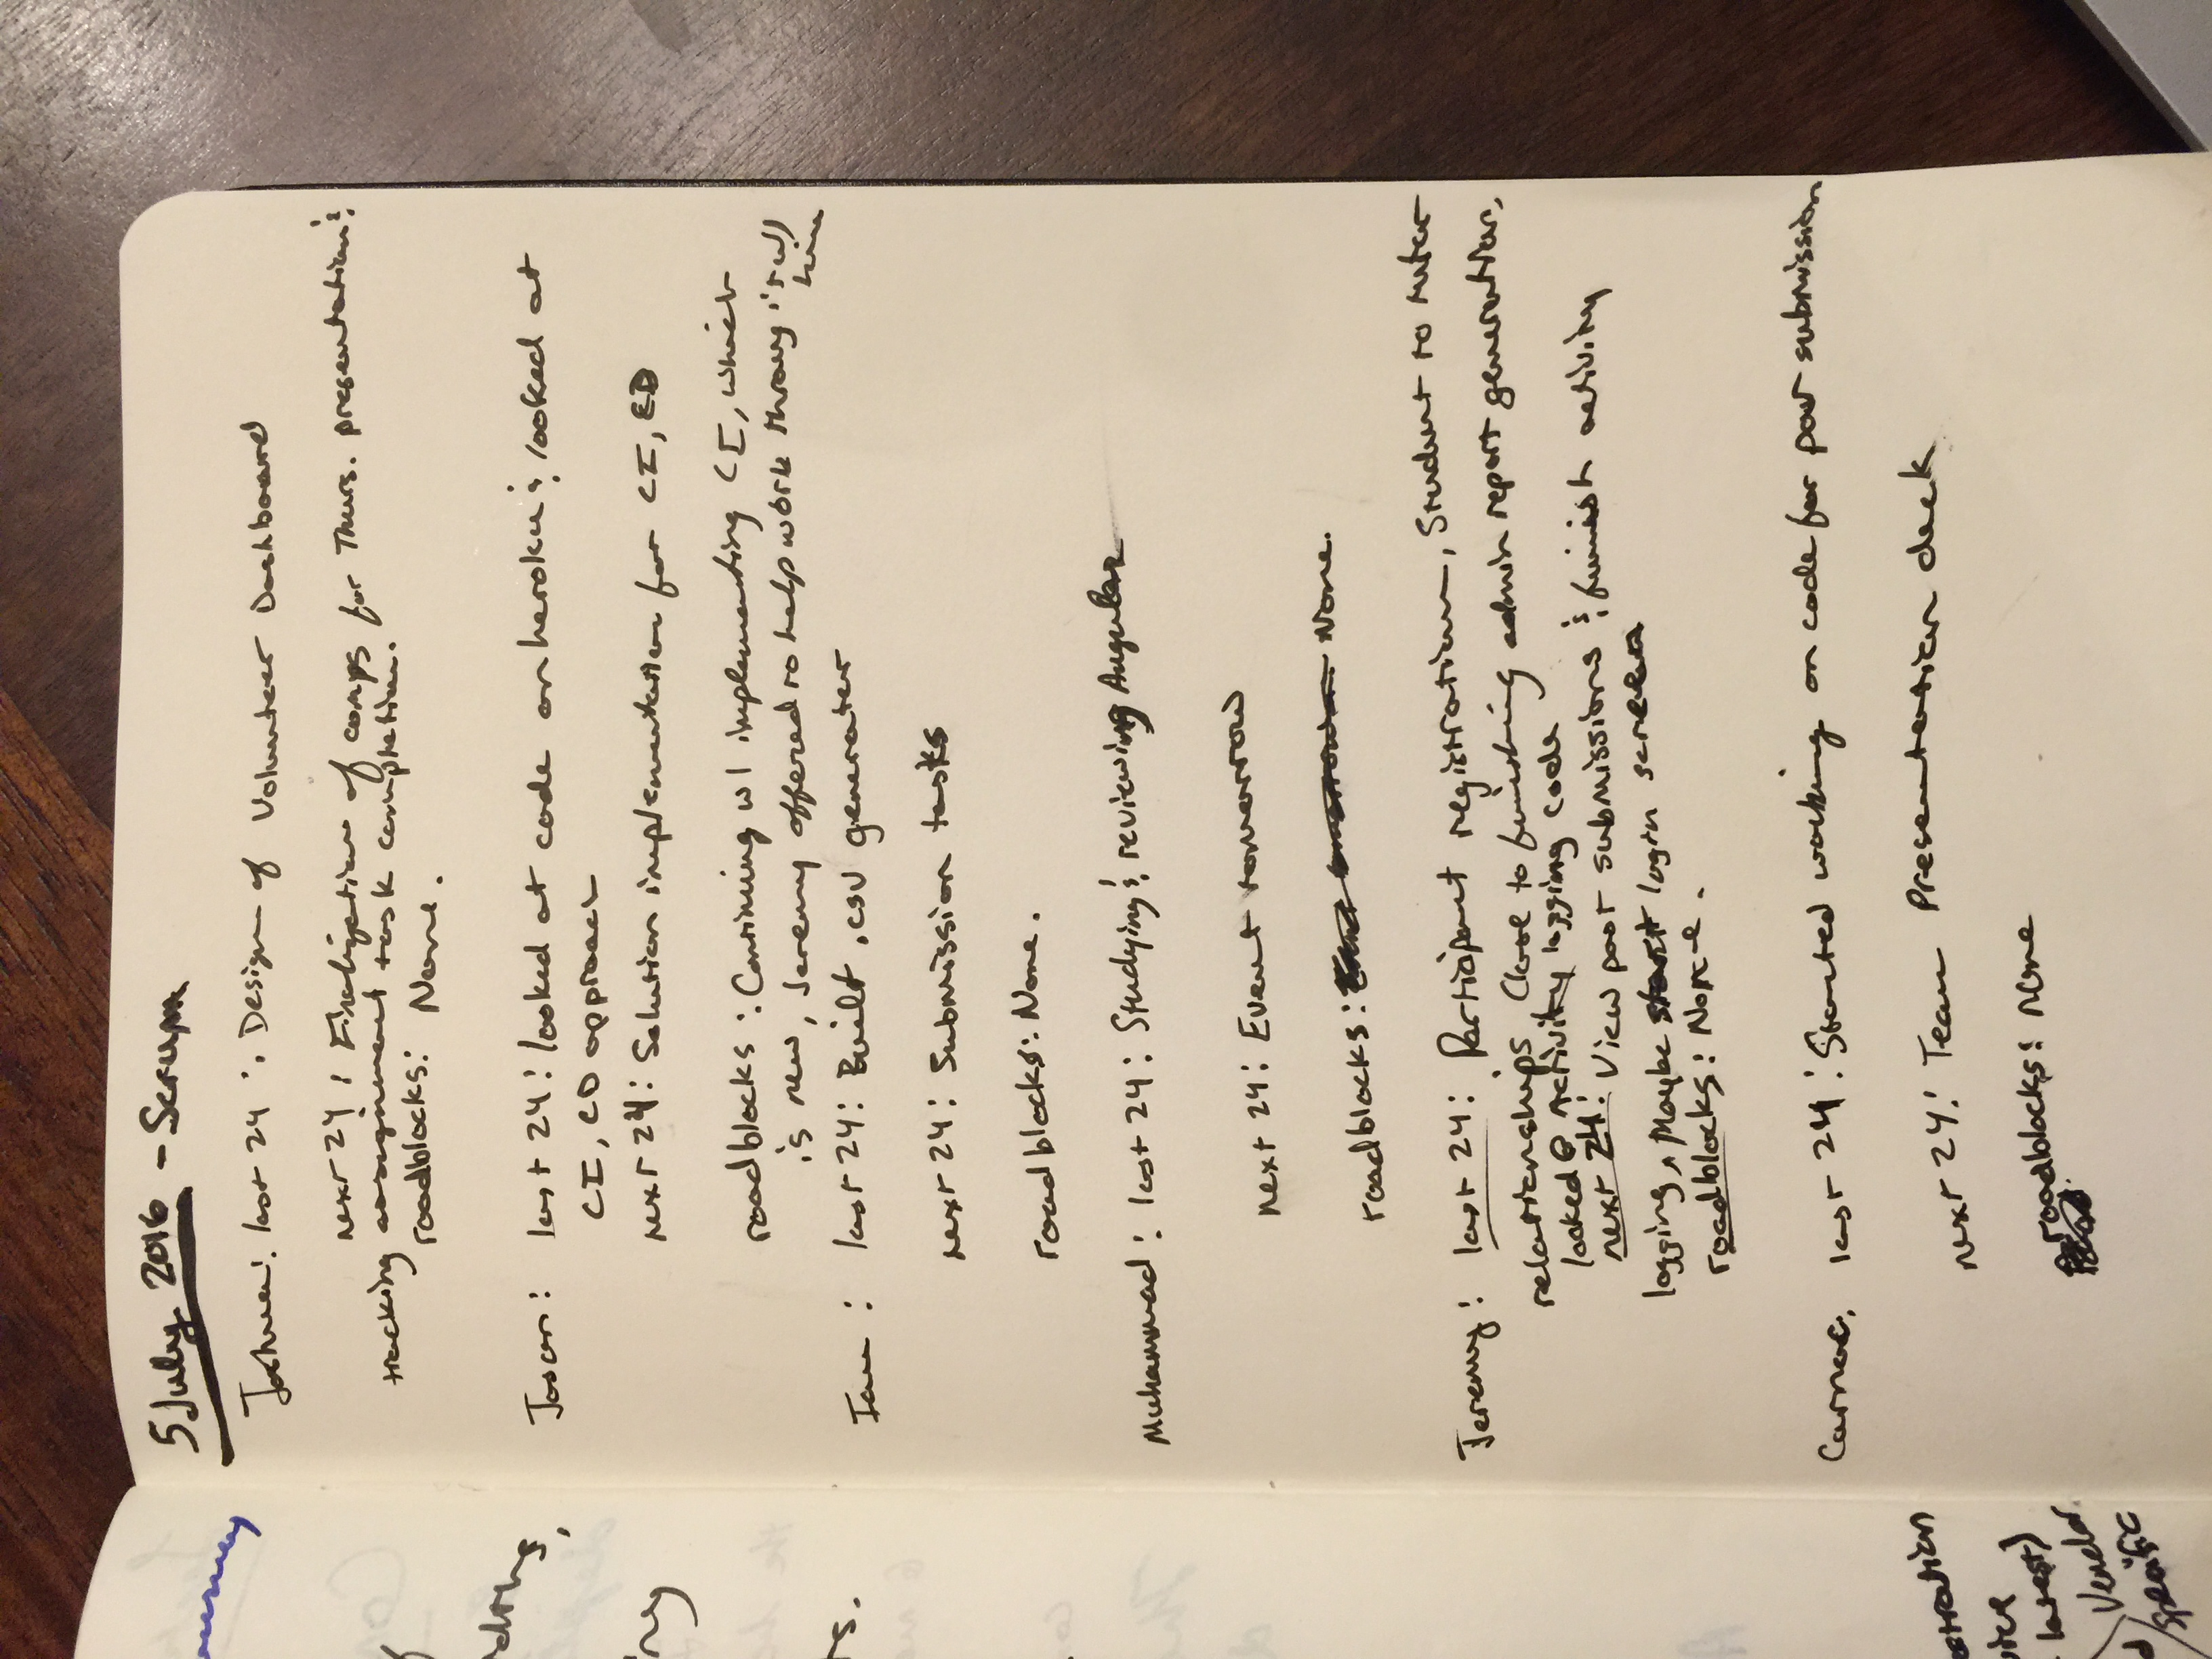 5 July 2016 - Scrum
Joshua: last 24: Design of Volunteer Dashboard
next 24: Finalization of comps for Thurs. presentation &
tracking assignment task completion.
roadblocks: None.
Jason: last 24: looked at code on heroku & looked at
CI, CD approach
next 24: Solution implementation for CI, CD
roadblocks: Continuing w/ implementing CI, which
is new, Jeremy offered to help work throug it w/
him
Ian: last 24: Built .csv generater
next 24: Submission tasks
roadblocks: None.
Muhammad: last 24: Studying & reviewing Angular
next 24: Event tomorrow
roadblocks: None.
Jeremy: last 24: Participant registration, Student to tutor
relationships, Close to finishing admin report generation,
looked @ Activity logging code
next 24: View post submissions & finish activity
logging, Maybe start login screen
roadblocks: None.
Carnac: last 24: Started working on code for post submission
next 24: Team Presentation deck
roadblocks: None
latest)
Vendor
Specific